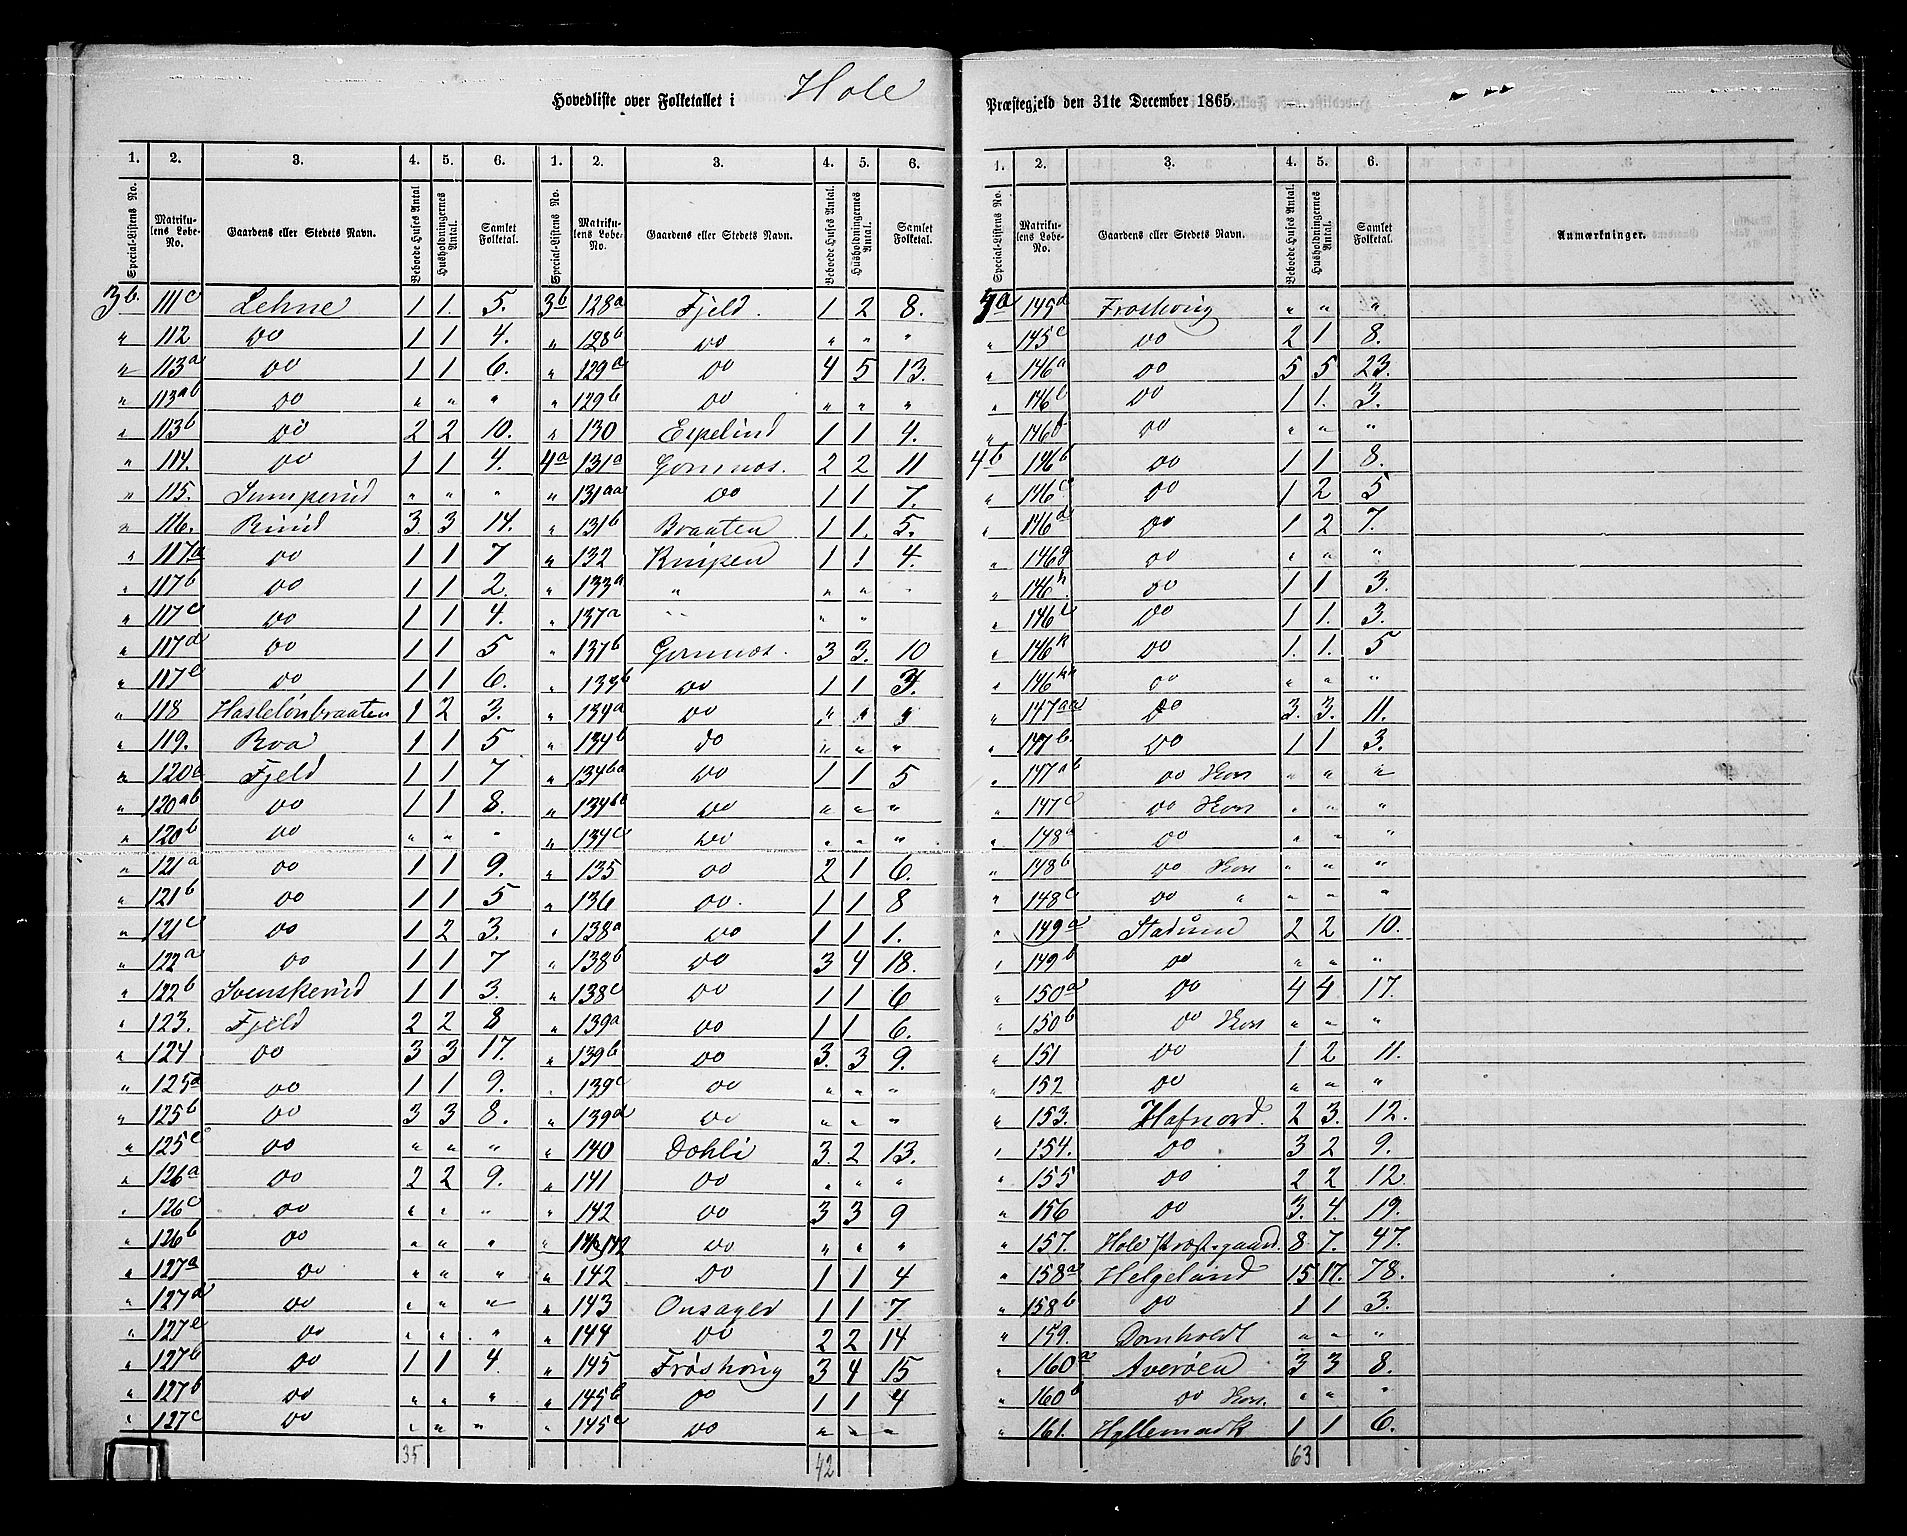 Hovedliste over Folketallet i Hole Præstegjeld den 31te December 1865.
1. 2. 3. 4. 5. 6. 1. 2. 3. 4. 5. 6.
Special-Listens No. Matrikulens Løbe-No. Gaardens eller Stedets Navn. Beboede Huses Antal Husholdningernes Antal. Samlet Folketal. Special-Listens No. Matrikulens Løbe-No. Gaardens eller Stedets Navn. Beboede Huses Antal. Husholdningernes Antal. Samlet Folketal.
3b. 111c Lehne 1 1. 5. 3b 128a Fjeld. 1 2 8.
" 112 do 1 1 4. " 128b do " " "
" 113a do 1 1 6. " 129a do 4 5 13.
" 113ab do " " " " 129b do " " "
" 113b do 2 2 10. " 130 Espelind 1 1 4.
" 114. do 1 1 4. 4a 131a Gomnæs. 2 2 11
" 115. Sumperud " " " " 131aa do 1 1 7.
" 116. Rniid 3. 3 14. " 131b Braaten 1 1. 5.
" 117a do 1 1 7 " 132 Knipen 1 1 4.
" 117b do 1 1 2. " 133a " " " "
" 117c do 1 1 4. " 137a " " "
" 117d do 1 1 5 " 137b Gomnæs. 3 3. 10
" 117e do 1 1 6. " 133b do 1 1 3.
" 118 Haslelønbraaten 1 2 3. " 134a do " " "
" 119. Roa 1 1 5 " 134b do " " "
" 120c Fjeld 1 1 7 " 134ba do 1 1 5
" 120ab do 1 1 8. " 134bb do " " "
" 120b do " " " " 134c do " " "
" 121a do 1 1 9. " 135 do 2 1 6.
" 121b do 1 1 5 " 136 do. 1 1 8
" 121c do 1 2 3. " 138a do 1 1 1.
" 122a do 1 1 7 " 138b do 3 4 18.
" 122b Svenskerud 1 1 3. " 138c do 1 1 6
" 123. Fjeld 2 2 8 " 139a do 1 1 6.
" 124 do 3 3 17. " 139b do 3. 3 9.
" 125a do 1 1 9. " 139c do " " "
" 125b do 3 3 8. " 139d do " " "
" 125c do " " " " 140 Dohli 3. 2 13.
" 126a do 2 2 9. " 141 do " " "
" 126c do " " " " 142 do 3 3 9
" 126b do " " " " 142 do " " "
" 127a do " " " " 142 do 1 1 4
" 127d do " " " " 143 Onsager 1 1 7.
" 127e do " " " " 144 do 2 2 14
" 127b do 1 1 4 " 145 Frøshoug 3 4 15
" 127b do " " " " 145b do 1 1 4
" 127c do " " " " 145c do " " "
35 42
1. 2. 3. 4. 5. 6.
Special-Listens No. Matrikulens Løbe-No. Gaardens eller Stedets Navn. Beboede Huses Antal. Husholdningernes Antal. Samlet Folketal. Anmærkninger.
4a 145d Froshoug " " "
" 145c do 2 1 8.
" 146a do 5 5 23.
" 146e do 1 1. 3.
" 146f do " " "
4b 146b do 1 1 8.
" 146c do 1 2 5
" 146d do 1 2 7.
" 146g do " " "
" 146h. do 1 1 3.
" 146i do 1 1. 3.
" 146k do 1. 1. 5
" 146ka do " " "
" 147aa do 3. 3. 11.
" 147b. do 1 1 3.
" 147ab do Hors " " "
" 147c do Hors " " "
" 148a do " " "
" 148b do Hors " " "
" 148c do " " " "
" 149a Stadum 2 2 10.
" 149b do " " "
" 150a do 4 4 17.
" 150b do Hors " " "
" 151 do 1 2 11.
" 152 do " " "
" 153. Hafnord. 2 3. 12.
" 154. do 3 2 9.
" 155 do 2 2 12
" 156 do 3. 4. 19.
" 157. Hole Præstegaard. 8 7. 47.
" 158a Helgeland 15 17. 78.
" 158b do 1 1 3.
" 159. Domholdt " " "
" 160a Averøen 3 3 8.
" 160b do Hors. " " "
" 161. Hyllemark 1 1 6.
63